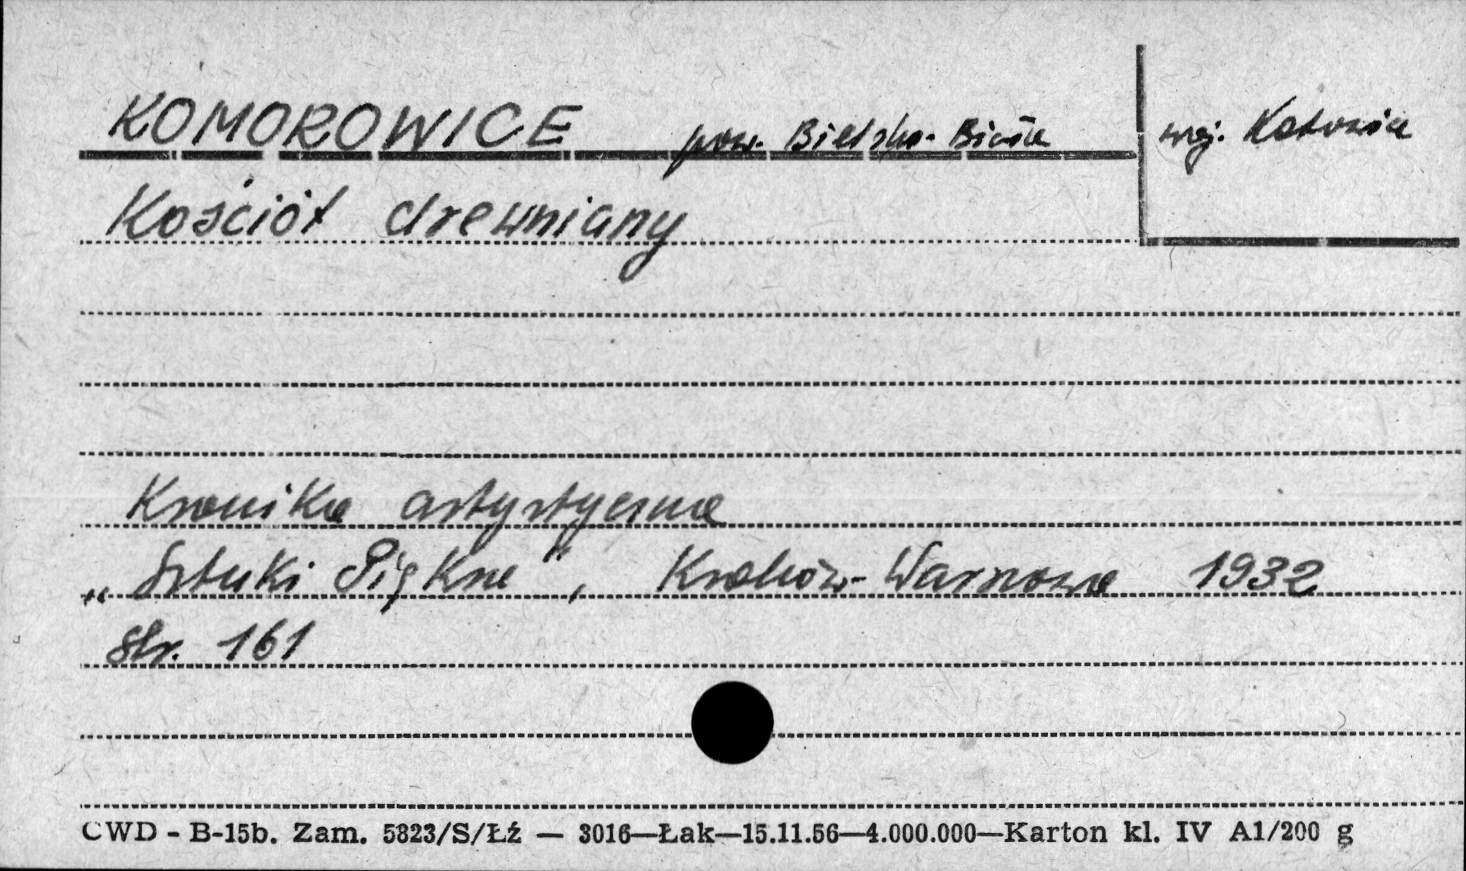 KOMOROWICE pow. Bielsko-Biała woj. Katowice
Kościół drewniany
Kronika artystyczna
„Sztuki Piękne", Kraków-Warszawa 1932
str. 161
CWD - B-15b. Zam. 5823/S/Łź — 3016—Łak—15.11.56—4.000.000—Karton kl. IV A1/200 g